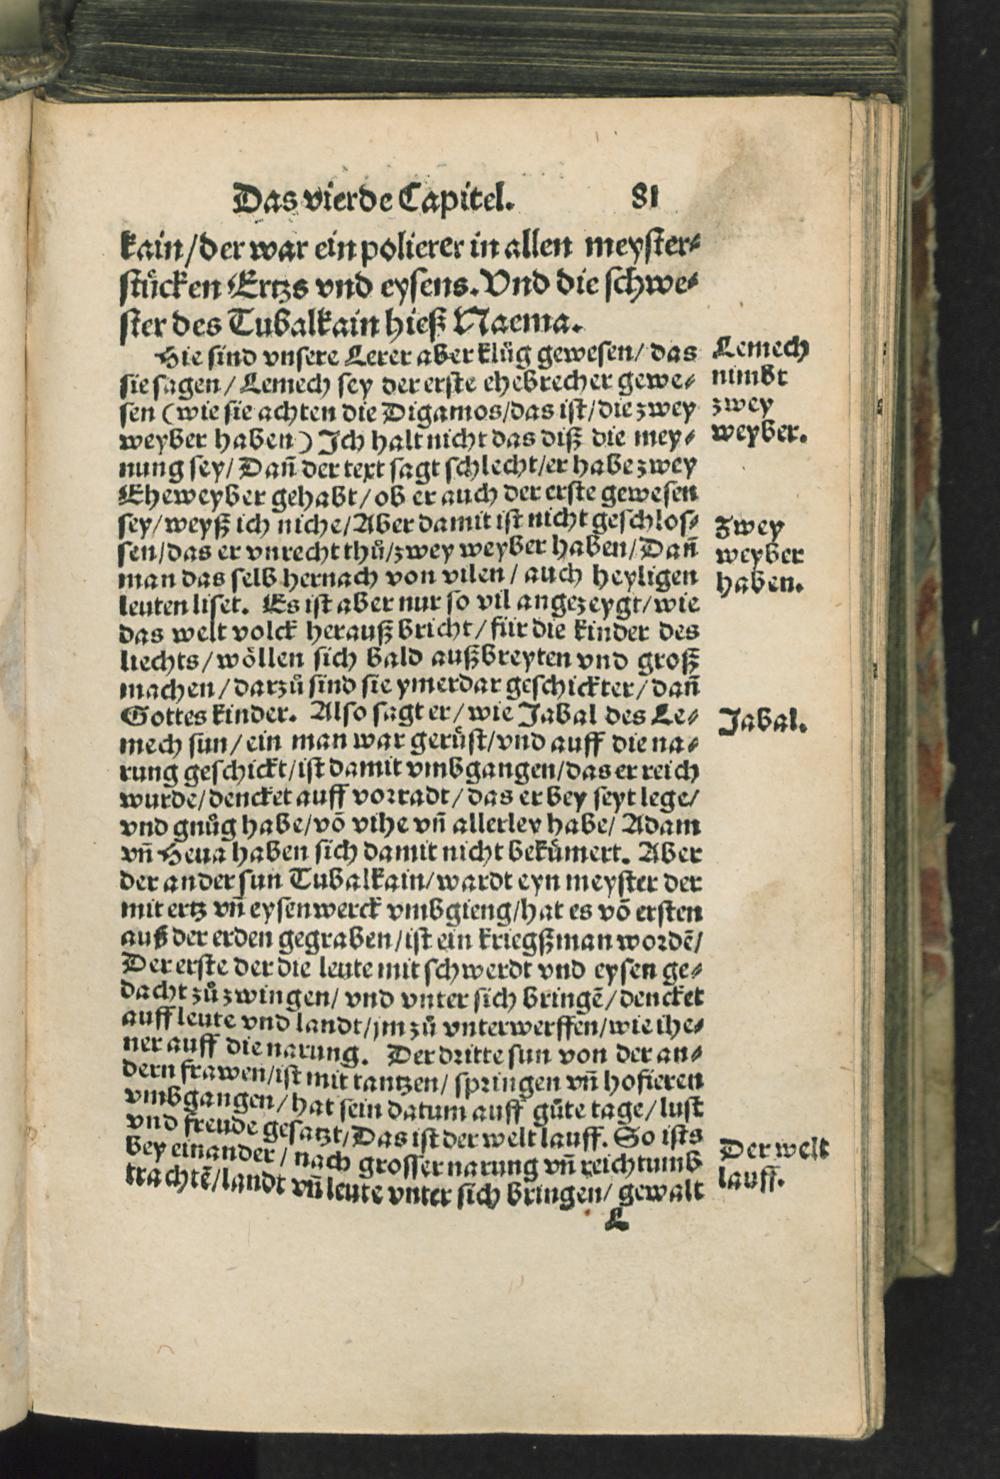 Das vierde Capitel. 81
kain/der war ein polierer in allen meyster⸗
stůcken Ertzs vnd eysens. Vnd die schwe⸗
ster des Tubalkain hieß Naema.
Hie sind vnsere Lerer aber klůg gewesen/das
sie sagen/Lemech sey der erste ehebrecher gewe⸗
sen (wie sie achten die Digamos/das ist/die zwey
weyber haben) Ich halt nicht das diß die mey⸗
nung sey/Dañ der text sagt schlecht/er habe zwey
Eheweyber gehabt/ob er auch der erste gewesen
sey/weyß ich niche/Aber damit ist nicht geschlos⸗
sen/das er vnrecht thů/zwey weyber haben/Dañ
man das selb hernach von vilen/auch heyligen
leuten liset. Es ist aber nur so vil angezeygt/wie
das welt volck herauß bricht/für die kinder des
liechts/wöllen sich bald außbreyten vnd groß
machen/darzů sind sie ymerdar geschickter/dañ
Gottes kinder. Also sagt er/wie Jabal des Le⸗
mech sun/ein man war gerüst/vnd auff die na⸗
rung geschickt/ist damit vmbgangen/das er reich
wurde/dencket auff vorradt/das er bey seyt lege/
vnd gnůg habe/võ vihe vñ allerley habe/Adam
vñ Heua haben sich damit nicht beküm̃ert. Aber
der ander sun Tubalkain/wardt eyn meyster der
mit ertz vñ eysenwerck vmbgieng/hat es võ ersten
auß der erden gegraben/ist ein kriegßman wordẽ/
Der erste der die leute mit schwerdt vnd eysen ge⸗
dacht zů zwingen/vnd vnter sich bringẽ/dencket
auff leute vnd landt/jm zů vnterwerffen/wie ihe⸗
ner auff die narung. Der dritte sun von der an⸗
dern frawen/ist mit tantzen/springen vñ hofieren
vmbgangen/hat sein datum auff gůte tage/lust
vnd freude gesatzt/Das ist der welt lauff. So ists
bey einander/nach grosser narung vñ reichtumb
trachtẽ/landt vñ leute vnter sich bringen/gewalt
L
Lemech
nimbt
zwey
weyber.
Zwey
weyber
haben.
Jabal.
Der welt
lauff.